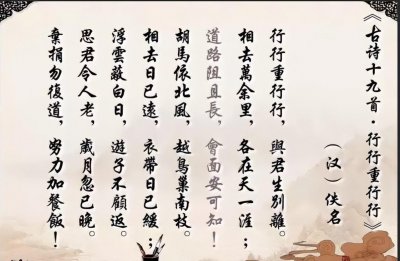 《古诗十九首·行行重行行》
（汉）佚名
行行重行行，與君生別離。
相去萬余里，各在天一涯；
道路阻且長，會面安可知！
胡馬依北風，越鳥巢南枝。
相去日已遠，衣帶日已緩；
浮雲蔽白日，遊子不顧返。
思君令人老，歲月忽已晚。
棄捐勿復道，努力加餐飯！